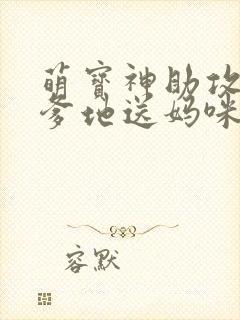 萌宝神助攻
爹地送妈咪
容默